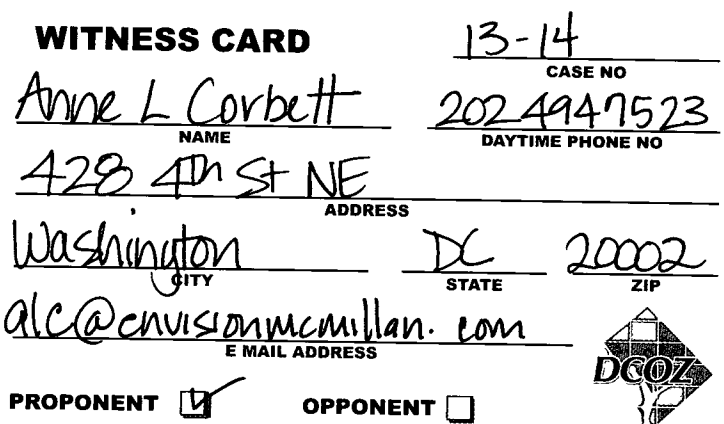 WITNESS CARD 13-14
CASE NO
Anne L Corbett 202 4947523
NAME DAYTIME PHONE NO
428 4th St NE
ADDRESS
Washington DC 20002
CITY STATE ZIP
alc@envisionmcmillan.com
E MAIL ADDRESS
DCOZ
PROPONENT OPPONENT